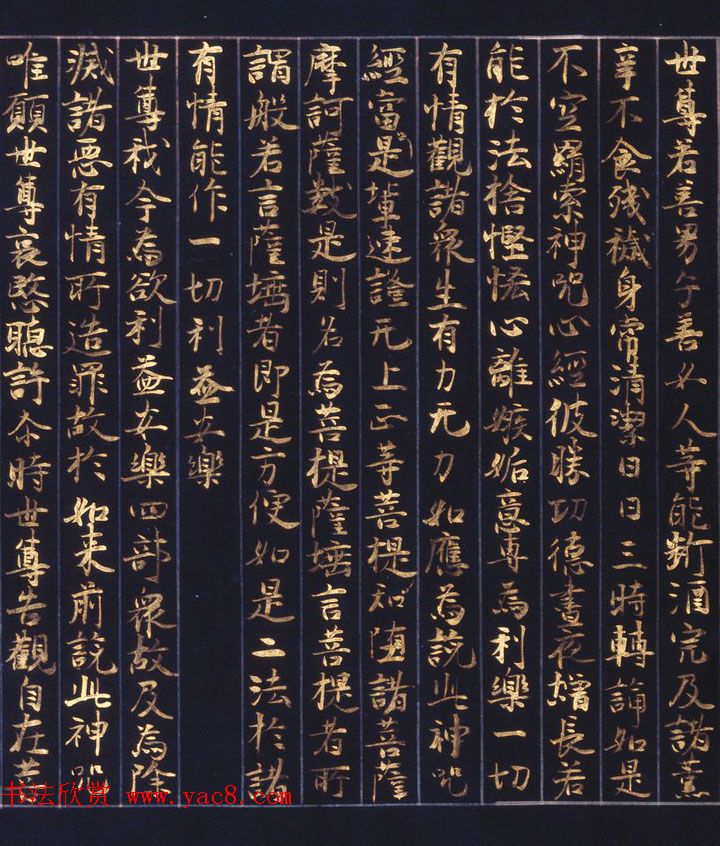 世尊若善男子善女人等能斷酒完及諸薰
辛不食殘穢身常清潔日日三時轉論如是
不空羂索神咒心經彼勝功德晝夜增長若
能於法捨慳悋心離嫉姤意專為利樂一切
有情觀諸眾生有力无力如應為說此神咒
經當是輩速證无上正等菩提知墮諸菩薩
摩訶薩數是則名為菩提薩埵言菩提者所
謂般若言薩埵者即是方便如是二法於諸
有情能作一切利益安樂
世尊我今為欲利益安樂四部眾故及為除
滅諸惡有情所造罪故於如来前說此神咒
唯願世尊哀愍聽許尒時世尊告觀自在菩
书法欣赏 www.yac8.com